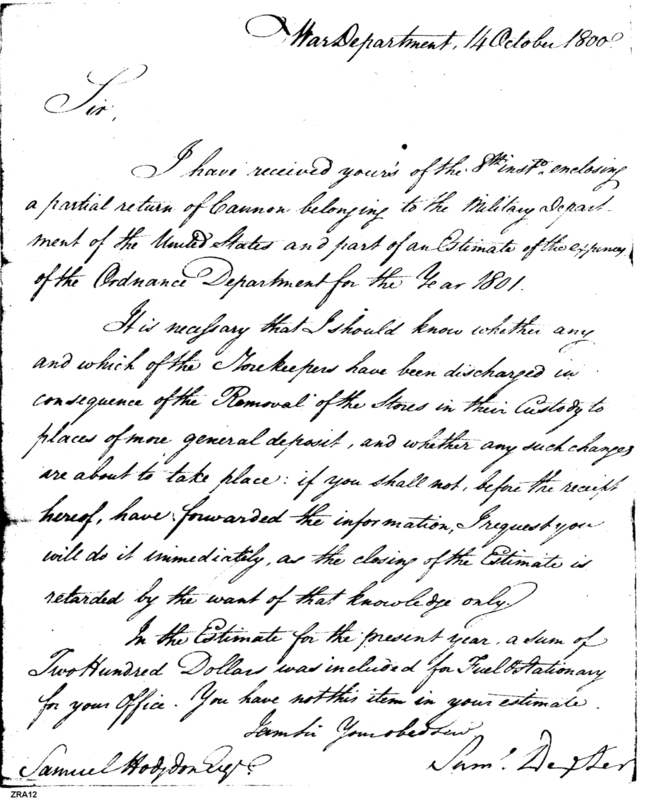 War Department, 14 October 1800.
Sir,
I have received your's of the 8th inst. enclosing
a partial return of Cannon belonging to the Military Depart-
ment of the United States and part of an Estimate of the expences
of the Ordnance Department for the Year 1801.
It is necessary that I should know whether any
and which of the Storekeepers have been discharged in
consequence of the Removal of the Stores in their Custody to
places of more general deposit, and whether any such changes
are about to take place: if you shall not, before the receipt
hereof, have forwarded the information, I request you
will do it immediately, as the closing of the Estimate is
retarded by the want of that knowledge only.
In the Estimate for the present year, a sum of
Two Hundred Dollars was included for Fuel & Stationary
for your Office. You have not this item in your estimate.
I am Sir Your obed Serv
Samuel Hodgdon Esqr.
Saml. Dexter
ZRA12